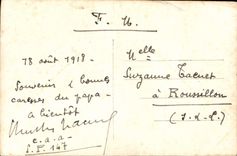 F. M.
18 août 1918.
Souvenirs & bonnes
caresses du papa
a bientôt
S. P. 147
Melle
Suzanne Tacnet
à Roussillon